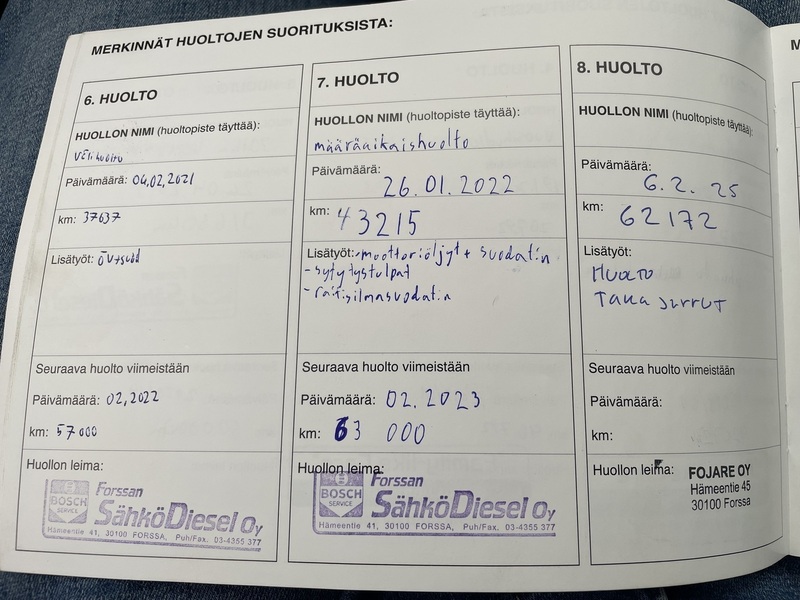 MERKINNÄT HUOLTOJEN SUORITUKSISTA:
6. HUOLTO
HUOLLON NIMI (huoltopiste täyttää):
Välihuolto
Päivämäärä: 04,02,2021
km: 37637
Lisätyöt: öv+suod
Seuraava huolto viimeistään
Päivämäärä: 02,2022
km: 57000
Huollon leima:
BOSCH
SERVICE
Forssan
SähköDiesel Oy
Hämeentie 41, 30100 FORSSA, Puh/Fax. 03-4355 377
7. HUOLTO
HUOLLON NIMI (huoltopiste täyttää):
määräaikaishuolto
Päivämäärä:
26.01.2022
km: 43215
Lisätyöt:-moottoriöljyt + suodatin
-sytytystulpat
-raitisilmasuodatin
Seuraava huolto viimeistään
Päivämäärä: 02.2023
km: 63 000
Huollon leima:
BOSCH
SERVICE
Forssan
SähköDiesel Oy
Hämeentie 41, 30100 FORSSA, Puh/Fax. 03-4355 377
8. HUOLTO
HUOLLON NIMI (huoltopiste täyttää):
Päivämäärä:
6.2. 25
km: 62172
Lisätyöt:
HUOLTO
TAKA JARRUT
Seuraava huolto viimeistään
Päivämäärä:
km:
Huollon leima:
FOJARE OY
Hämeentie 45
30100 Forssa
M